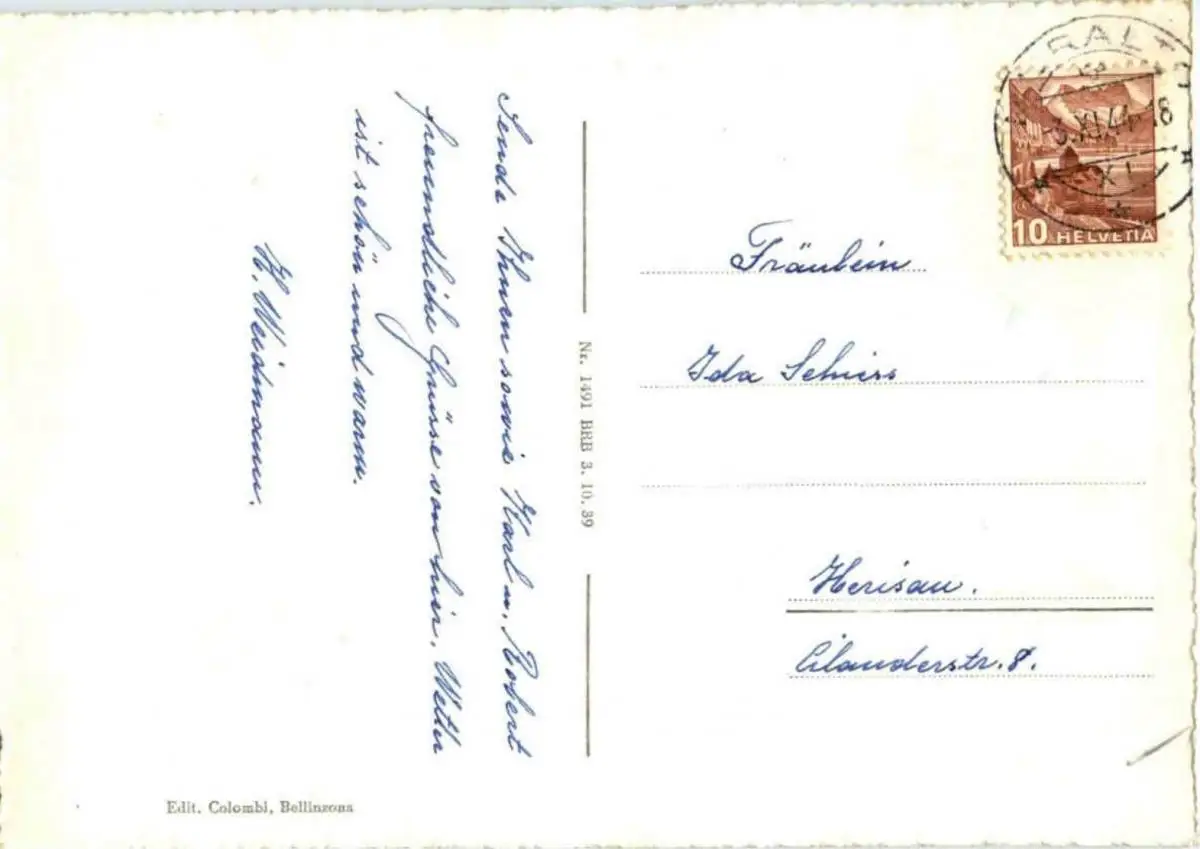 Sende Ihnen sowie Karl u. Robert
freundliche Grüsse von hier. Wetter
ist schön und warm.
H. Weidmann.
Nr. 1491 BRB 3. 10. 39
Edit. Colombi, Bellinzona
3.XI.44-18
XI
10 HELVETIA
Fräulein
Ida Schiess
Herisau.
Cilanderstr. 8.